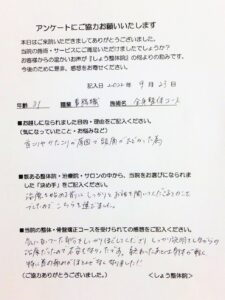 アンケートにご協力お願いいたします
本日はご来院いただきましてありがとうございました。
当院の施術・サービスにご満足いただけましたでしょうか？
お客様からの温かいお声が「しょう整体院」の何よりの励みです。
今後のために是非、感想をお寄せください。
記入日 2020年 9月23日
年齢 31 職業 事務職 施術名 全身整体コース
■お越しになられました目的・理由をご記入ください。
（気になっていたこと・お悩みなど）
首こりやかたこりが原因で頭痛がおこった為
■数ある整体院・治療院・サロンの中から、当院をお選びになられました「決め手」をご記入ください。
治療を始める前にしっかりとお話を聞いてくださるとのことでしたのでこちらを選びました。
■当院の整体・骨盤矯正コースを受けられての感想をご記入ください。
気になっていた所をしっかりほぐして
（ご協力ありがとうございました。） ＜しょう整体院＞